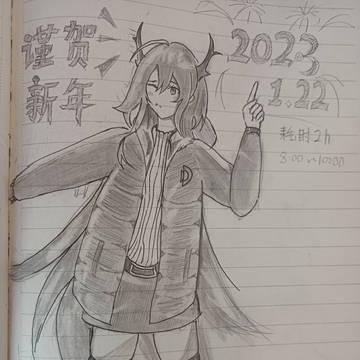 谨贺
新年
2023
1.22
耗时2h
8:00~10:00
D